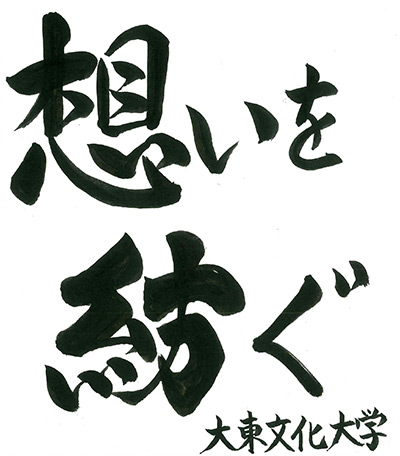 想いを
紡ぐ
大東文化大学